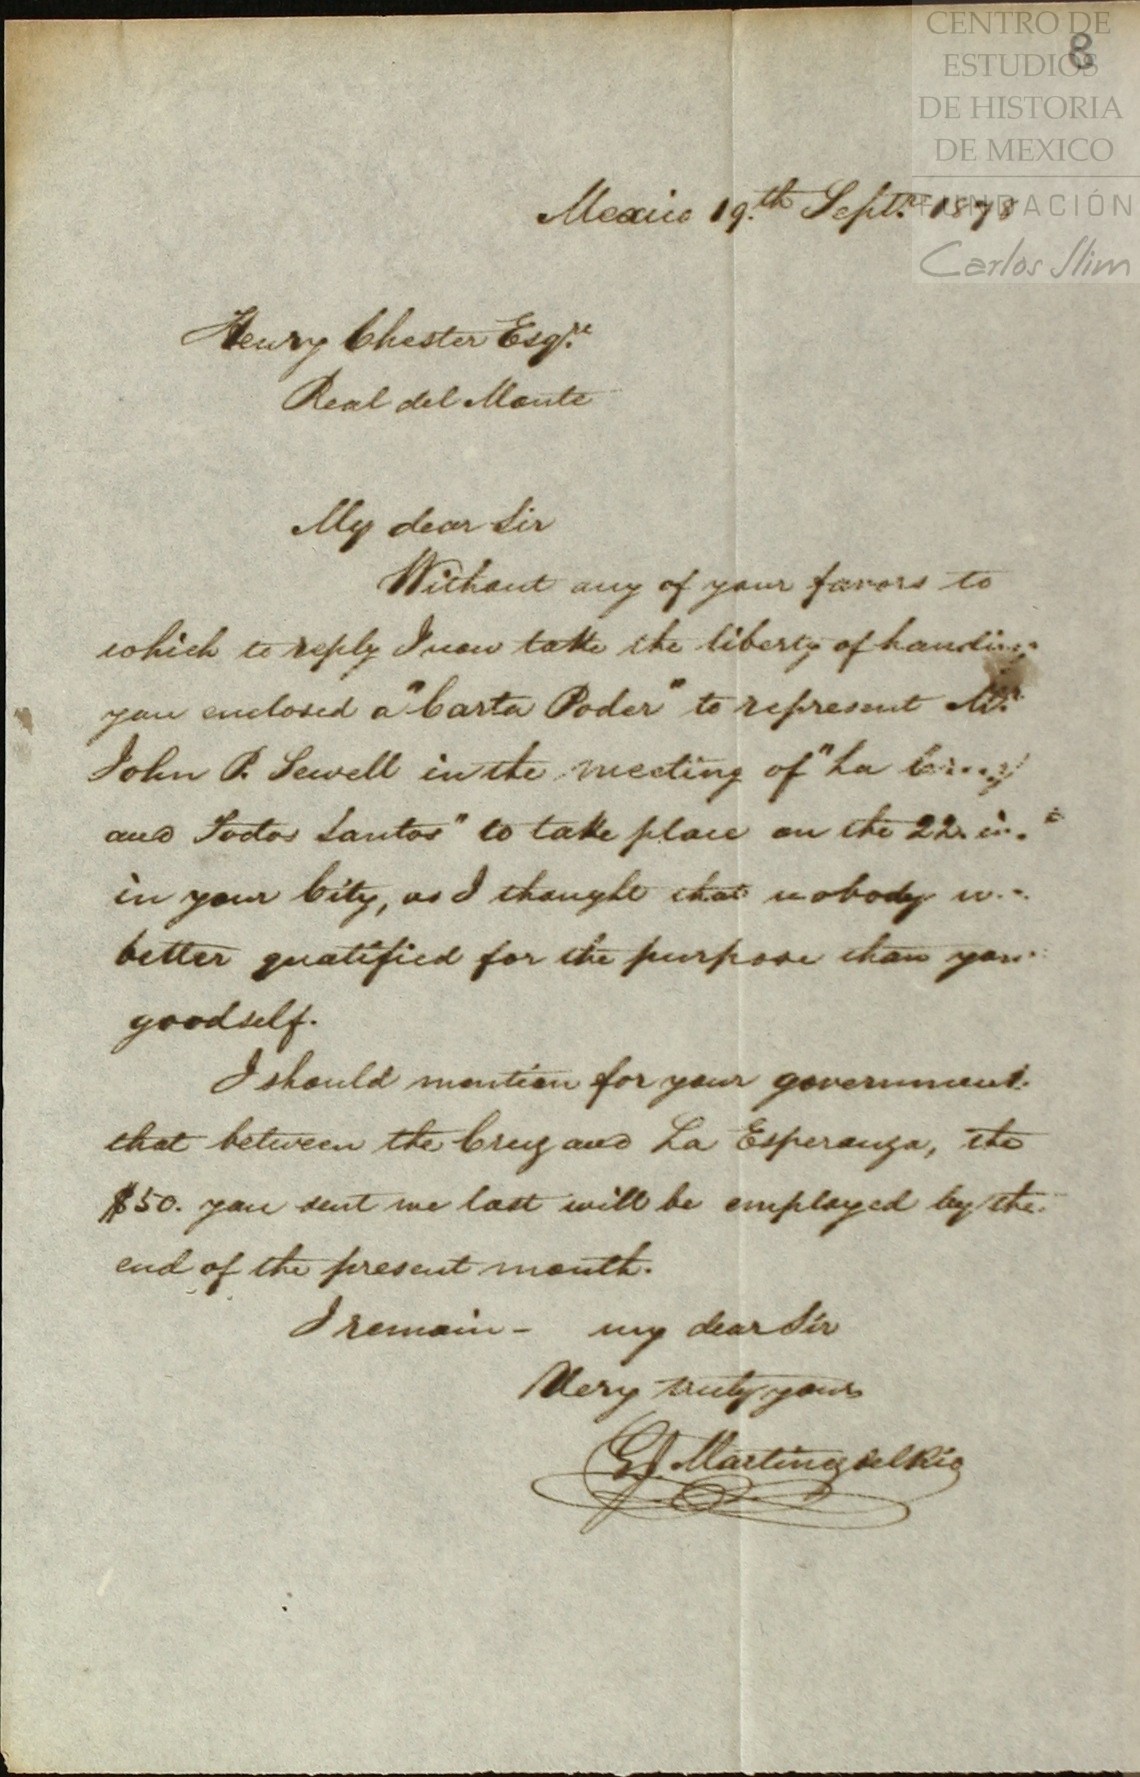 CENTRO DE
ESTUDIOS
DE HISTORIA
DE MEXICO
FUNDACIÓN
Carlos Slim
8
Mexico 19.th Septre 1878
Henry Chester Esqre
Real del Monte
My dear Sir
Without any of your favors to
which to reply I now take the liberty of handing
you enclosed a "Carta Poder" to represent Mr.
John P. Sewell in the meeting of "La Cruz
and Todos Santos" to take place on the 22.
in your City, as I thought that nobody
better qualified for the purpose than your
goodself.
I should mention for your government
that between the Cruz and La Esperanza, the
$50. you sent me last will be employed by the
end of the present month.
I remain - my dear Sir
Very truly yours
Martinez del Rio